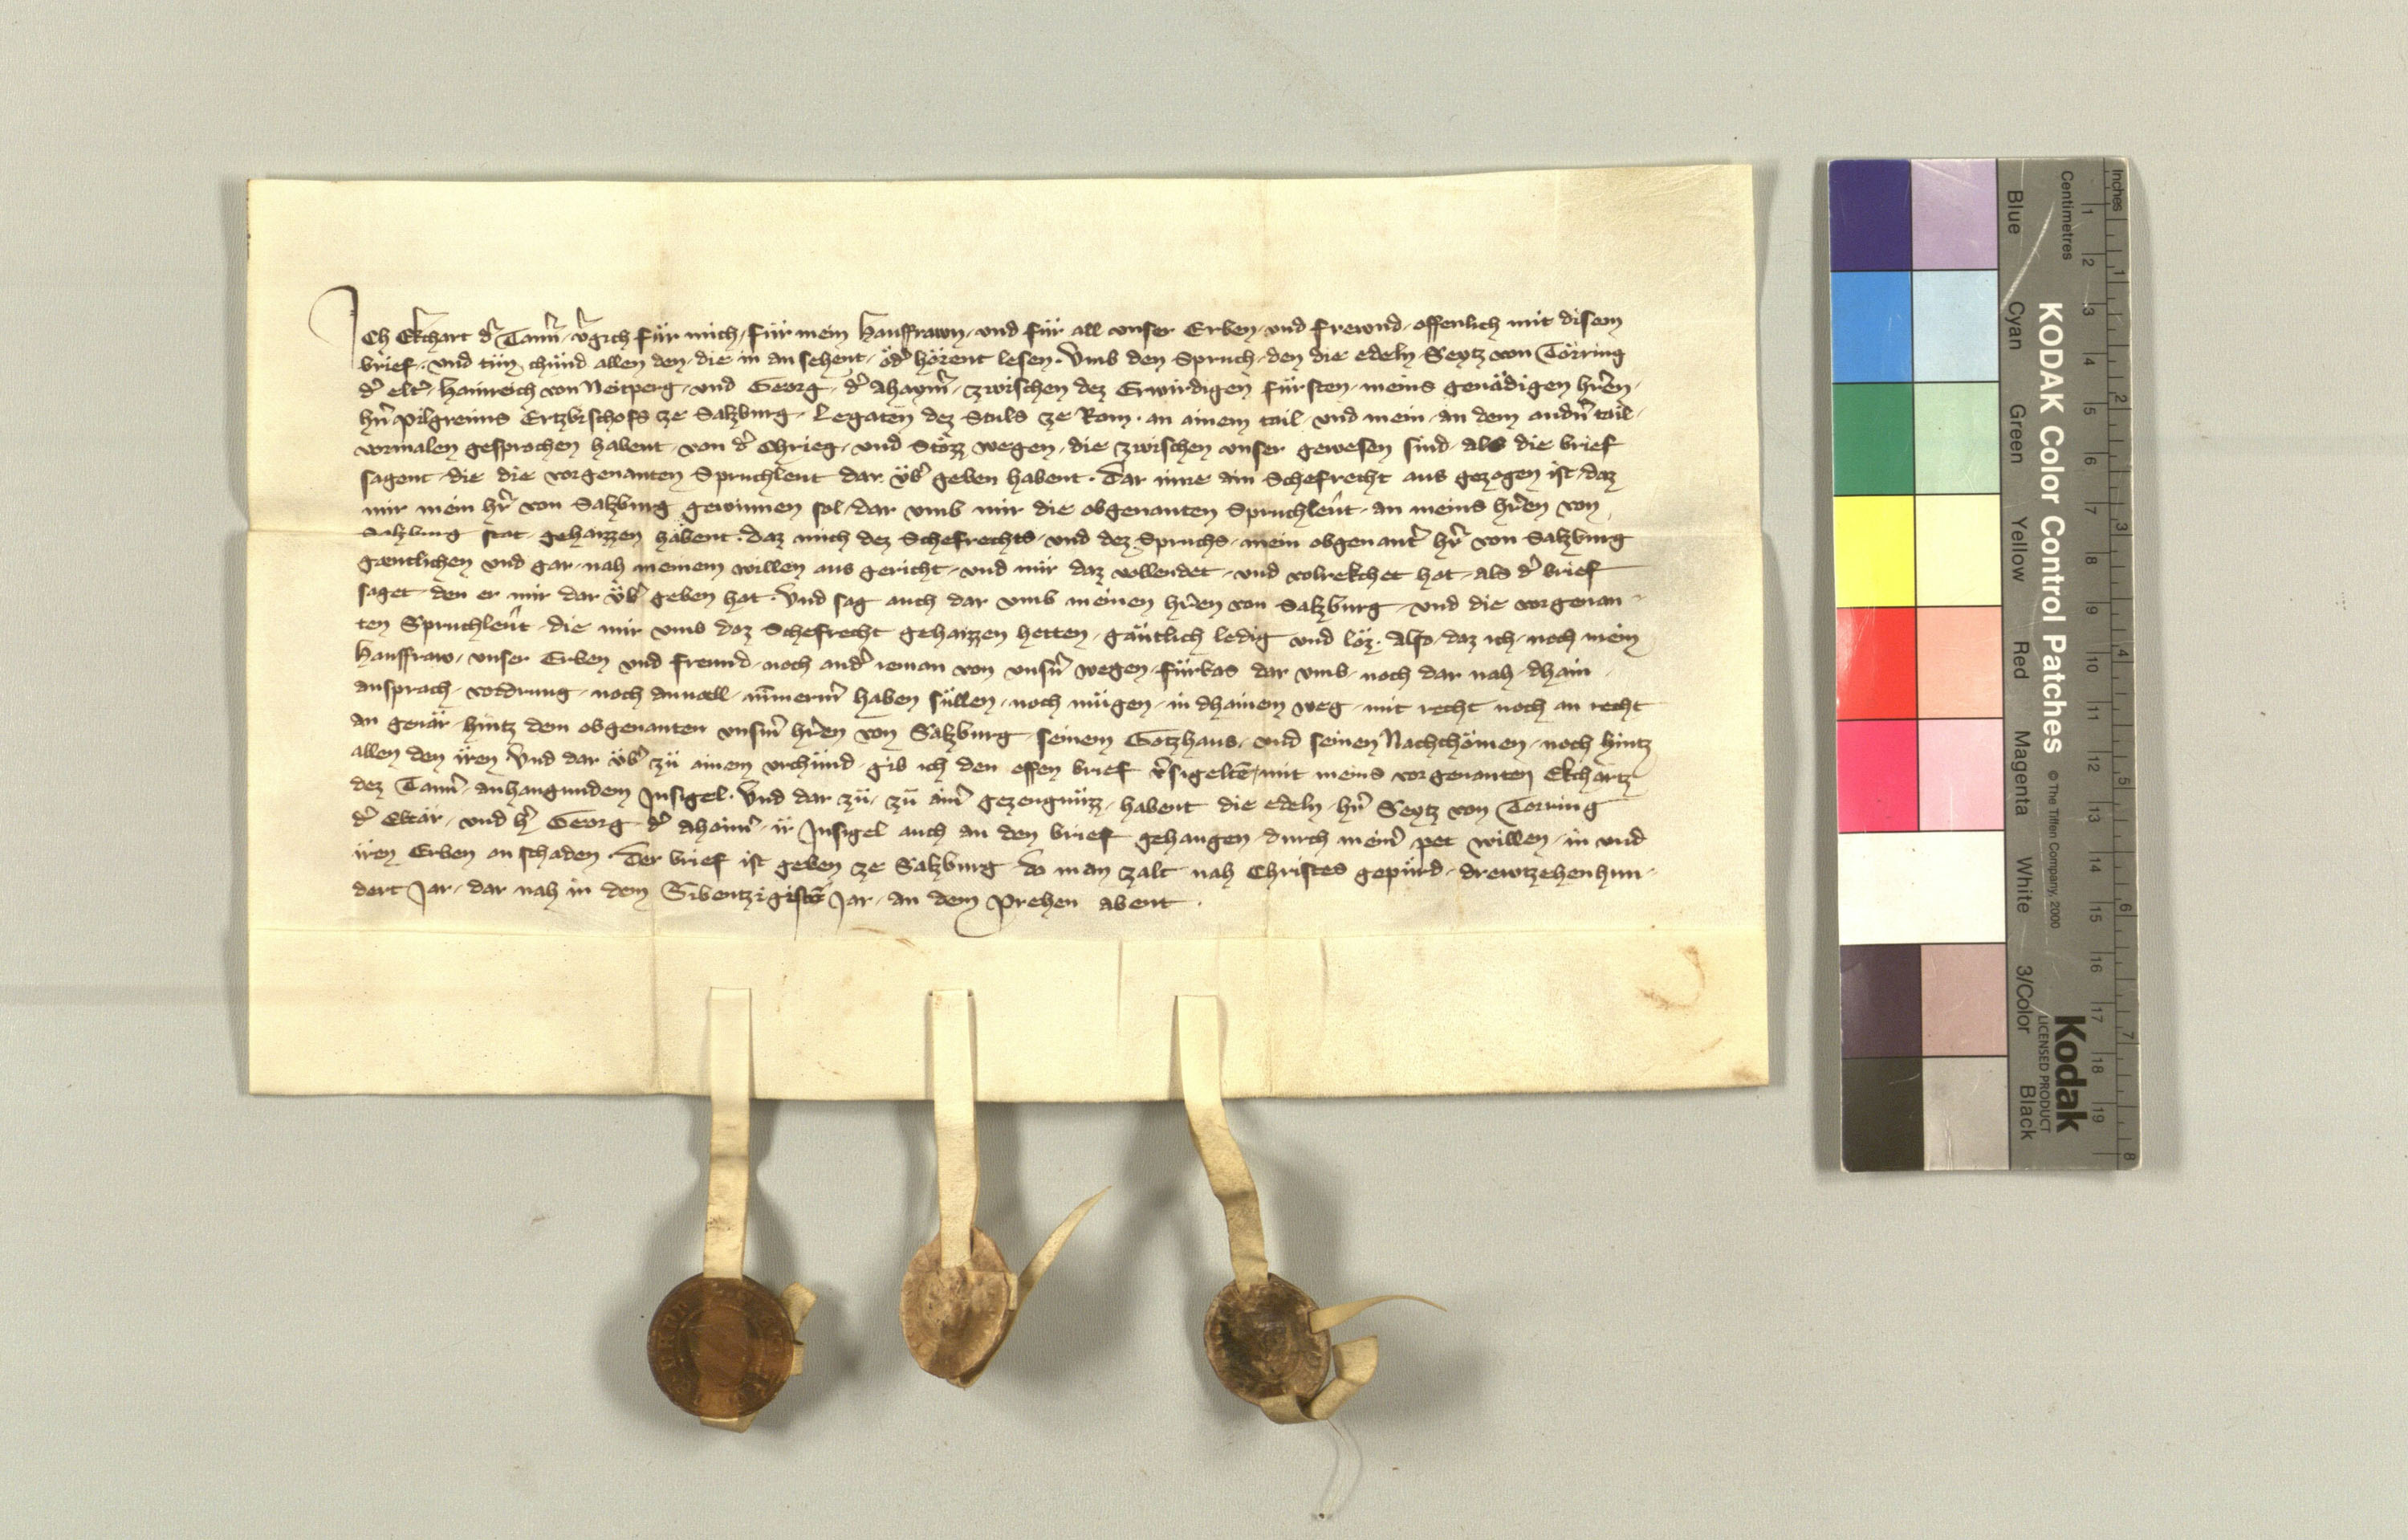 Ich Ekchart dr Tannr vrgich für mich, für mein Hausfrawn, und für all unser Erben, und frewnd, offenlich mit disem
brief, und tůn chund allen den, die in an sehent, oder hörent lesen. Umb den Spruch, den die edeln Seytz von Törring
dr eltr, Hainreich von Neitperg, und Georg dr Ahaymr, zwischen dez Erwirdigen fürsten, meins genädigen hren,
hrn Pilgreims Ertzbischofs ze Salzburg, Legaten dez Stuls ze Rom, an ainem tail, und mein, an dem andrn tail,
vormalen gesprochen habent, von dr Chrieg, und Stözz wegen, die zwischen unser gewesen sind, als die brief
sagent, die die vorgenanten Spruchleut dar übr geben habent. Dar inne ain Schefrecht aus gezogen ist, daz
mir mein hr von Salzburg gewinnen sol, dar umb mir die obgenanten Spruchleut, an meins hren von
Salzburg stat gehaizzen habent. Daz mich dez Schefrechts, und dez Spruchs, mein obgenantr hr von Salzburg
gentlichen und gar, nah meinem willen aus gericht, und mir daz vollendet, und volrekchet hat, als dr brief
saget, den er mir dar übr geben hat. Und sag auch dar umb meinen hren von Salzburg, und die vorgenan-
ten Spruchleut, die mir umb daz Schefrecht gehaizzen hetten, gäntlich ledig und löz. Also, daz ich, noch mein
Hausfraw, unser Erben und freund, noch andr ieman von unsrn wegen, fürbas dar umb, noch dar nah, dhain
ansprach, vodrung, noch anvall, nimmermr haben süllen, noch mügen, in dhainem weg, mit recht noch an recht
an gevär, hintz dem obgenanten unsrm hren von Salzburg, seinem Gotzhaus, und seinen Nachchömen, noch hintz
allen den iren. Und dar übr zů ainem urchund, gib ich den offen brief vrsigelten mit meins vorgenanten Ekchartz
dez Tannr, anhangundem Insigel. Und dar zů, zů ainr gezeugnüzz, habent die edeln, hrn Seytz von Torring
dr Eltär, und hr Georg dr Ahaimr, ir Insigel auch an den brief gehangen, durch meinr pet willen, in und
iren Erben an schaden. Der brief ist geben ze Salzburg, do man zalt nah Christes gepürd, drewtzehenhun-
dert Jar, dar nah in dem Sibentzigisten Jar, an dem Prehen abent.
KODAK Color Control Patches © The Tiffen Company, 2000
Kodak
LICENSED PRODUCT
Blue Cyan Green Yellow Red Magenta White 3/Color Black
Centimetres 1 2 3 4 5 6 7 8 9 10 11 12 13 14 15 16 17 18 19
Inches 1 2 3 4 5 6 7 8